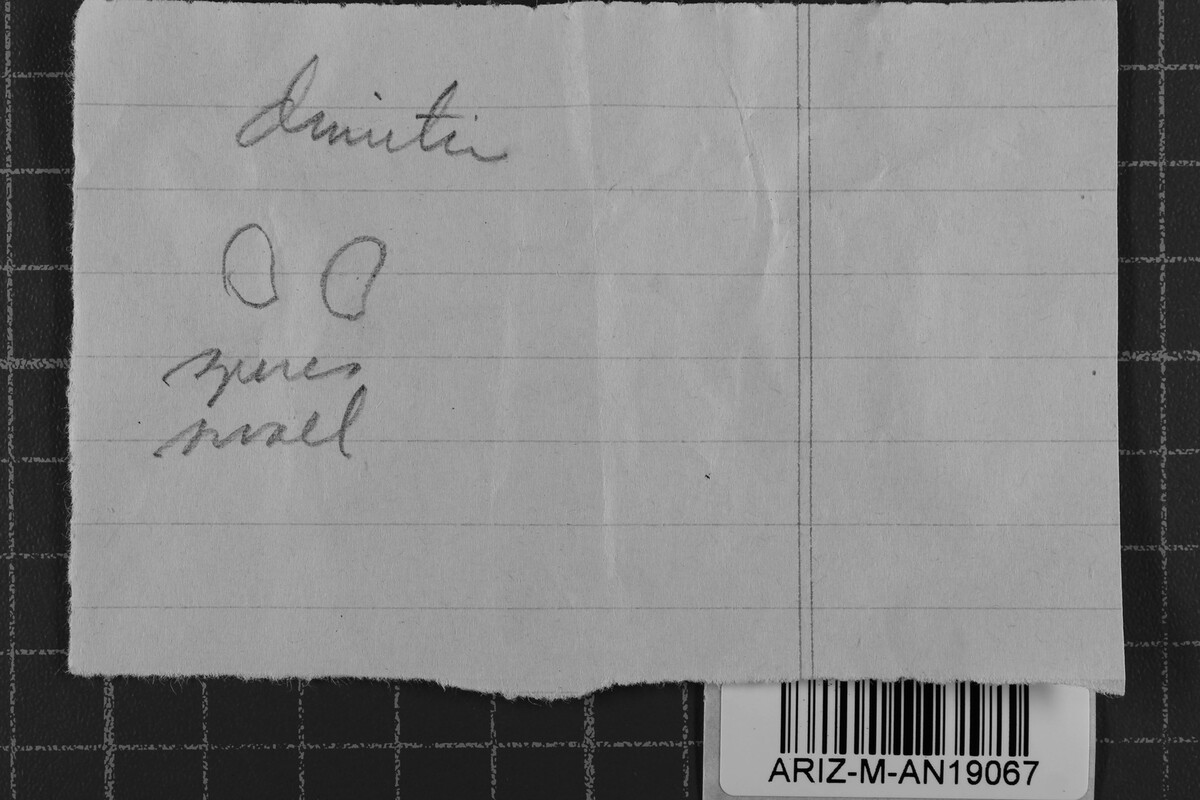 spores
small
ARIZ-M-AN19067